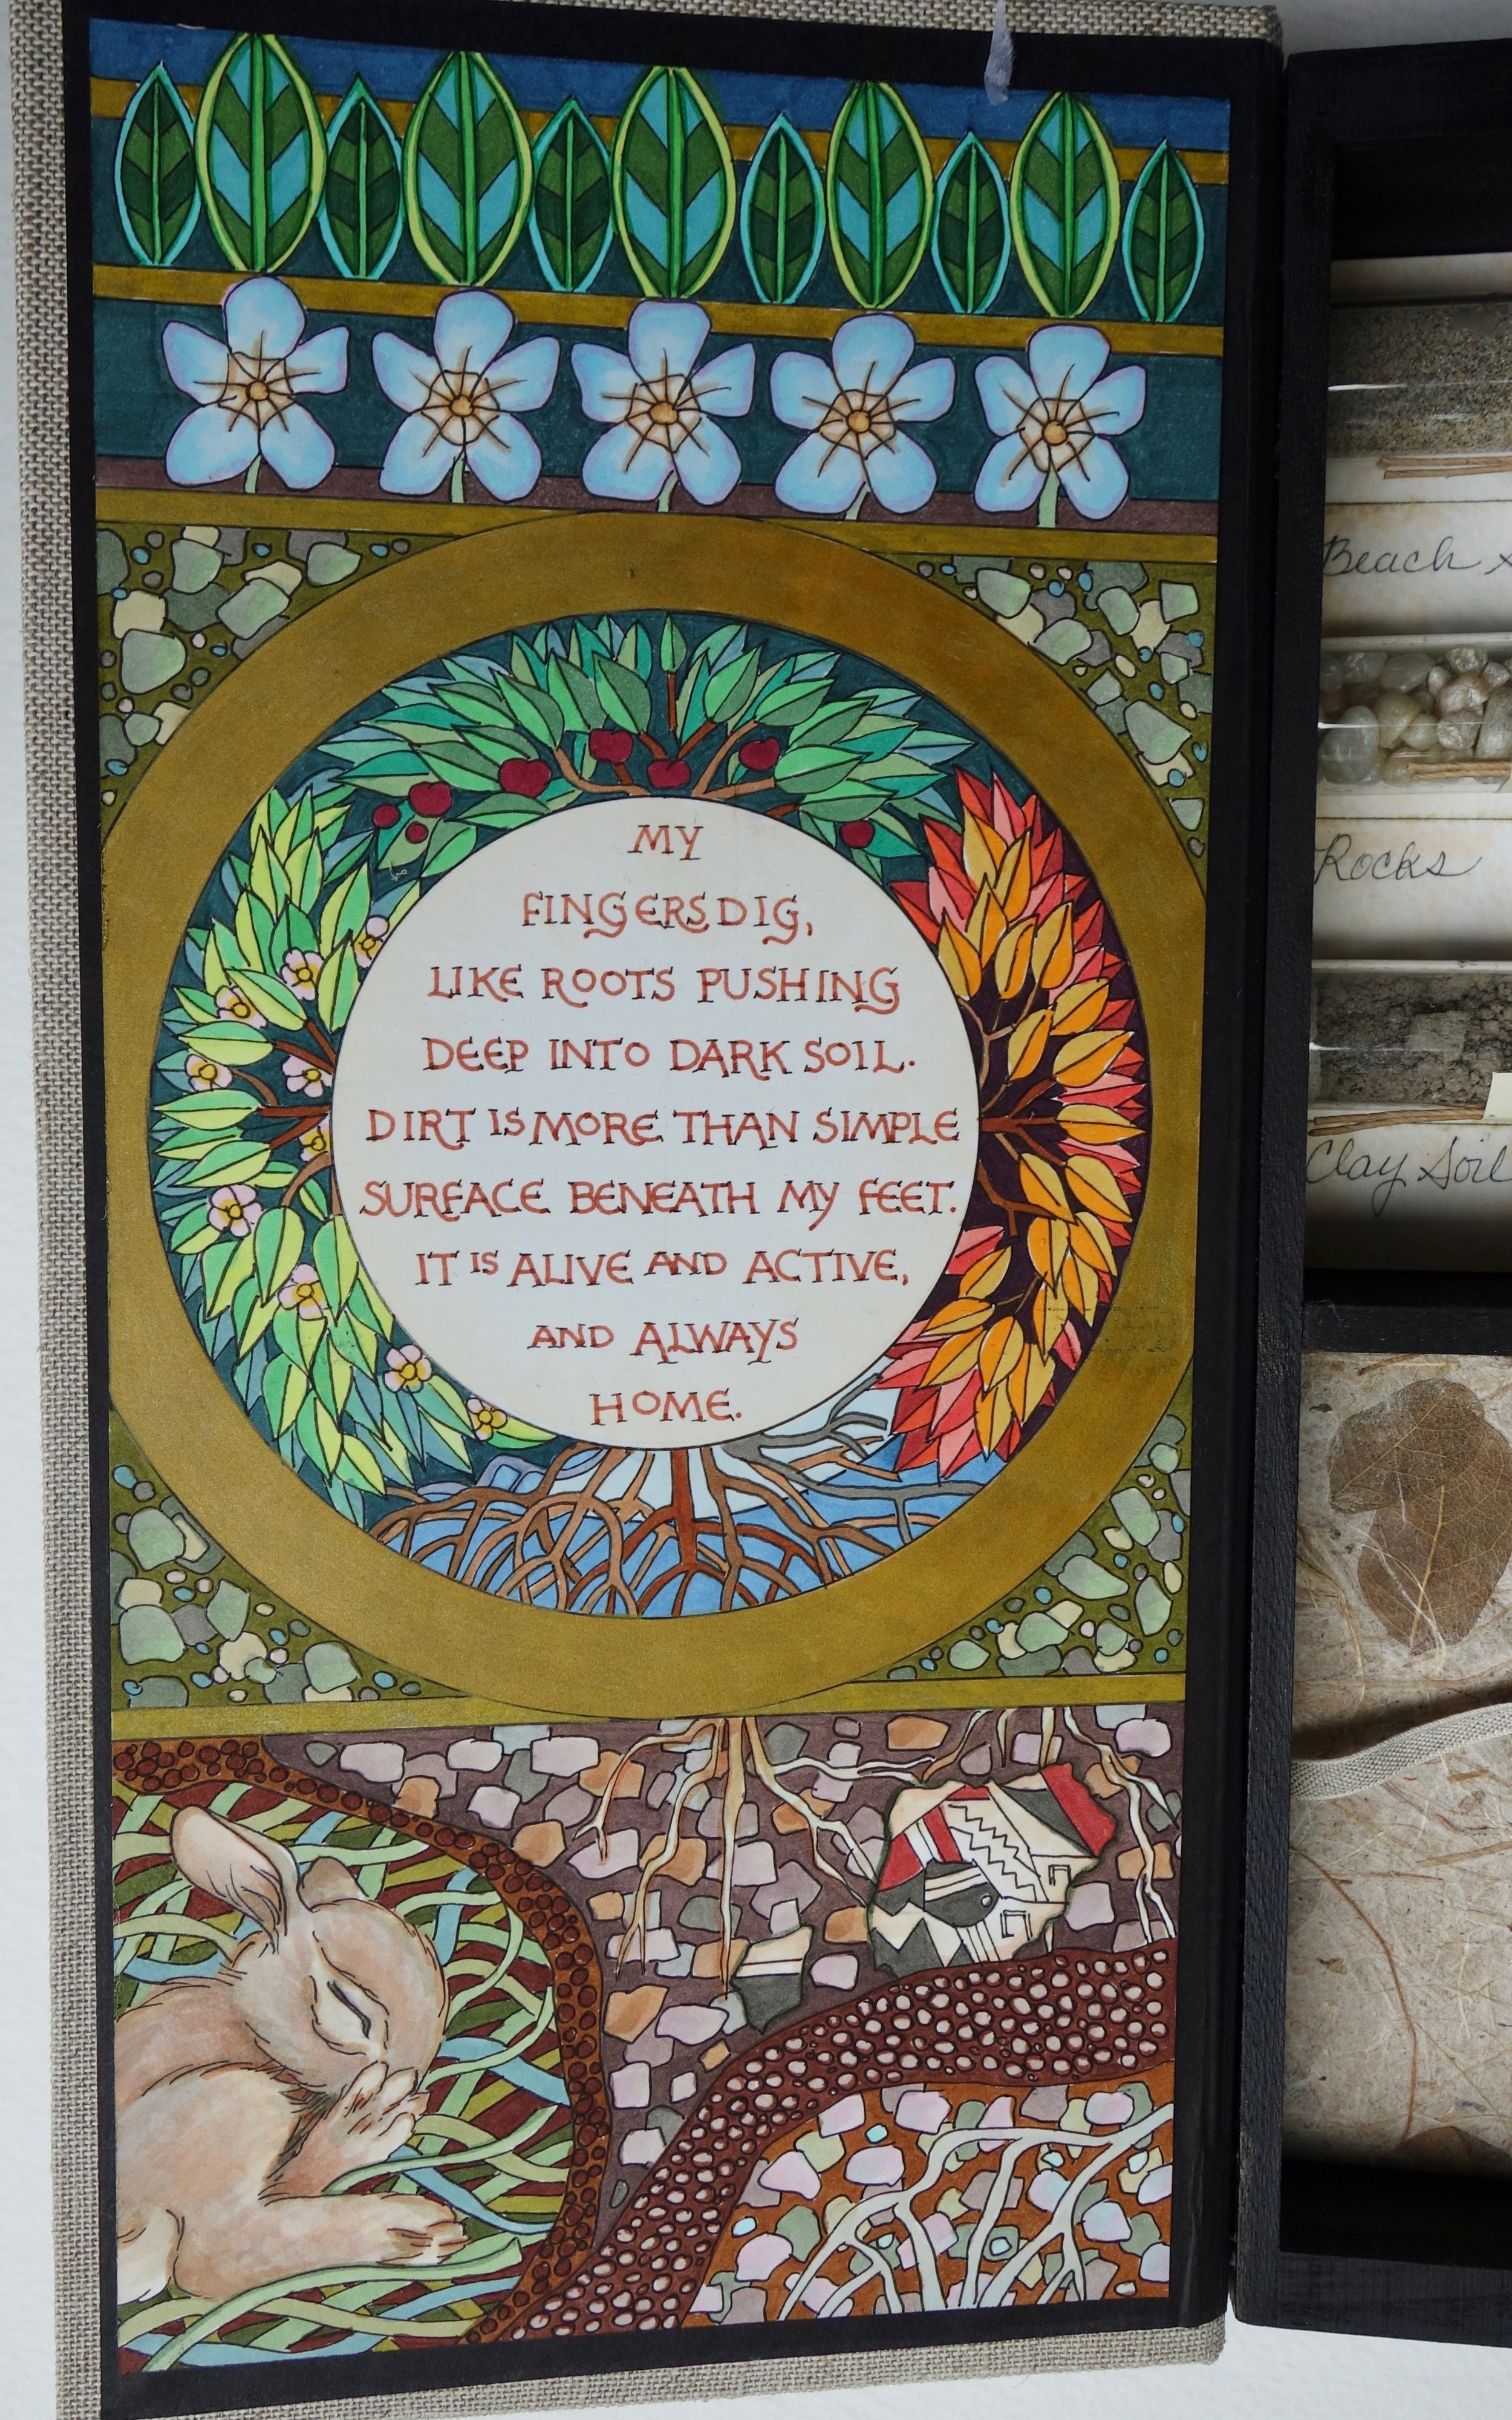 MY
FINGERS DIG,
LIKE ROOTS PUSHING
DEEP INTO DARK SOIL.
DIRT IS MORE THAN SIMPLE
SURFACE BENEATH MY FEET.
IT IS ALIVE AND ACTIVE,
AND ALWAYS
HOME.
Beach
Rocks
Clay Soil